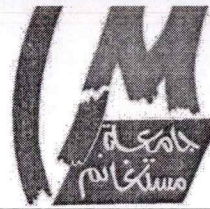 جامعة
مستغانم